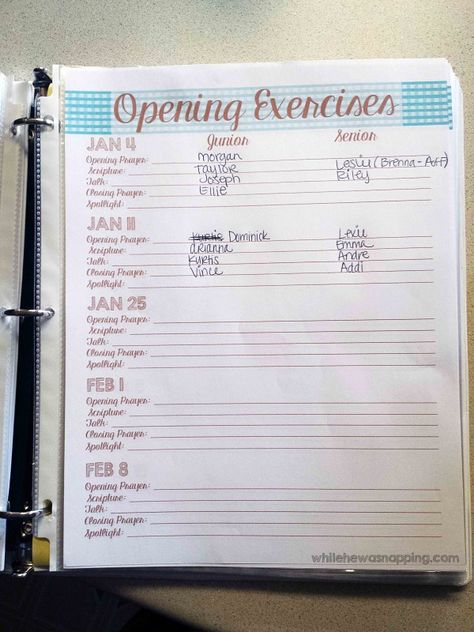 Opening Exercises
Junior Senior
JAN 4
Opening Prayer: Morgan
Scripture: Taylor Leslie (Brenna-
Talk: Joseph Riley
Closing Prayer: Ellie
Spotlight:
JAN 11
Opening Prayer: Kurtis Dominick Lexie
Scripture: Arianna Emma
Talk: Kurtis Andre
Closing Prayer: Vince Addi
Spotlight:
JAN 25
Opening Prayer:
Scripture:
Talk:
Closing Prayer:
Spotlight:
FEB 1
Opening Prayer:
Scripture:
Talk:
Closing Prayer:
Spotlight:
FEB 8
Opening Prayer:
Scripture:
Talk:
Closing Prayer:
Spotlight:
whilehewasnapping.com